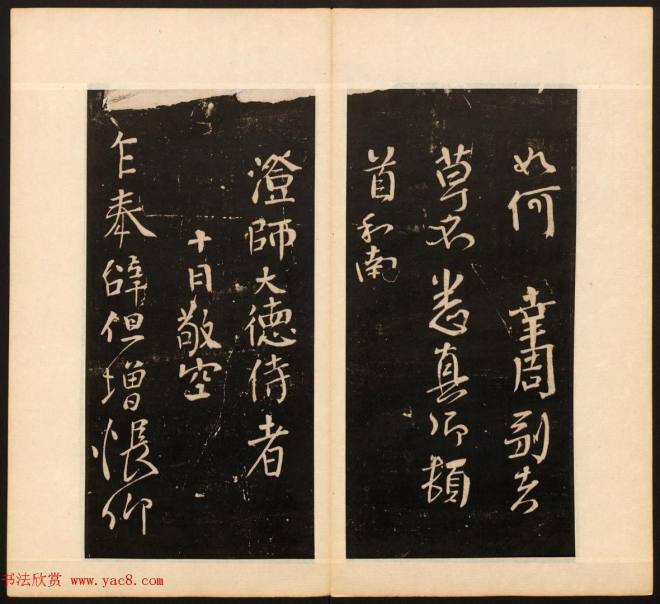 如何 幸周副其
草不悉真卿頓
首和南
澄師大德侍者
十日敬空
乍奉辭但增悵仰
书法欣赏 www.yac8.com